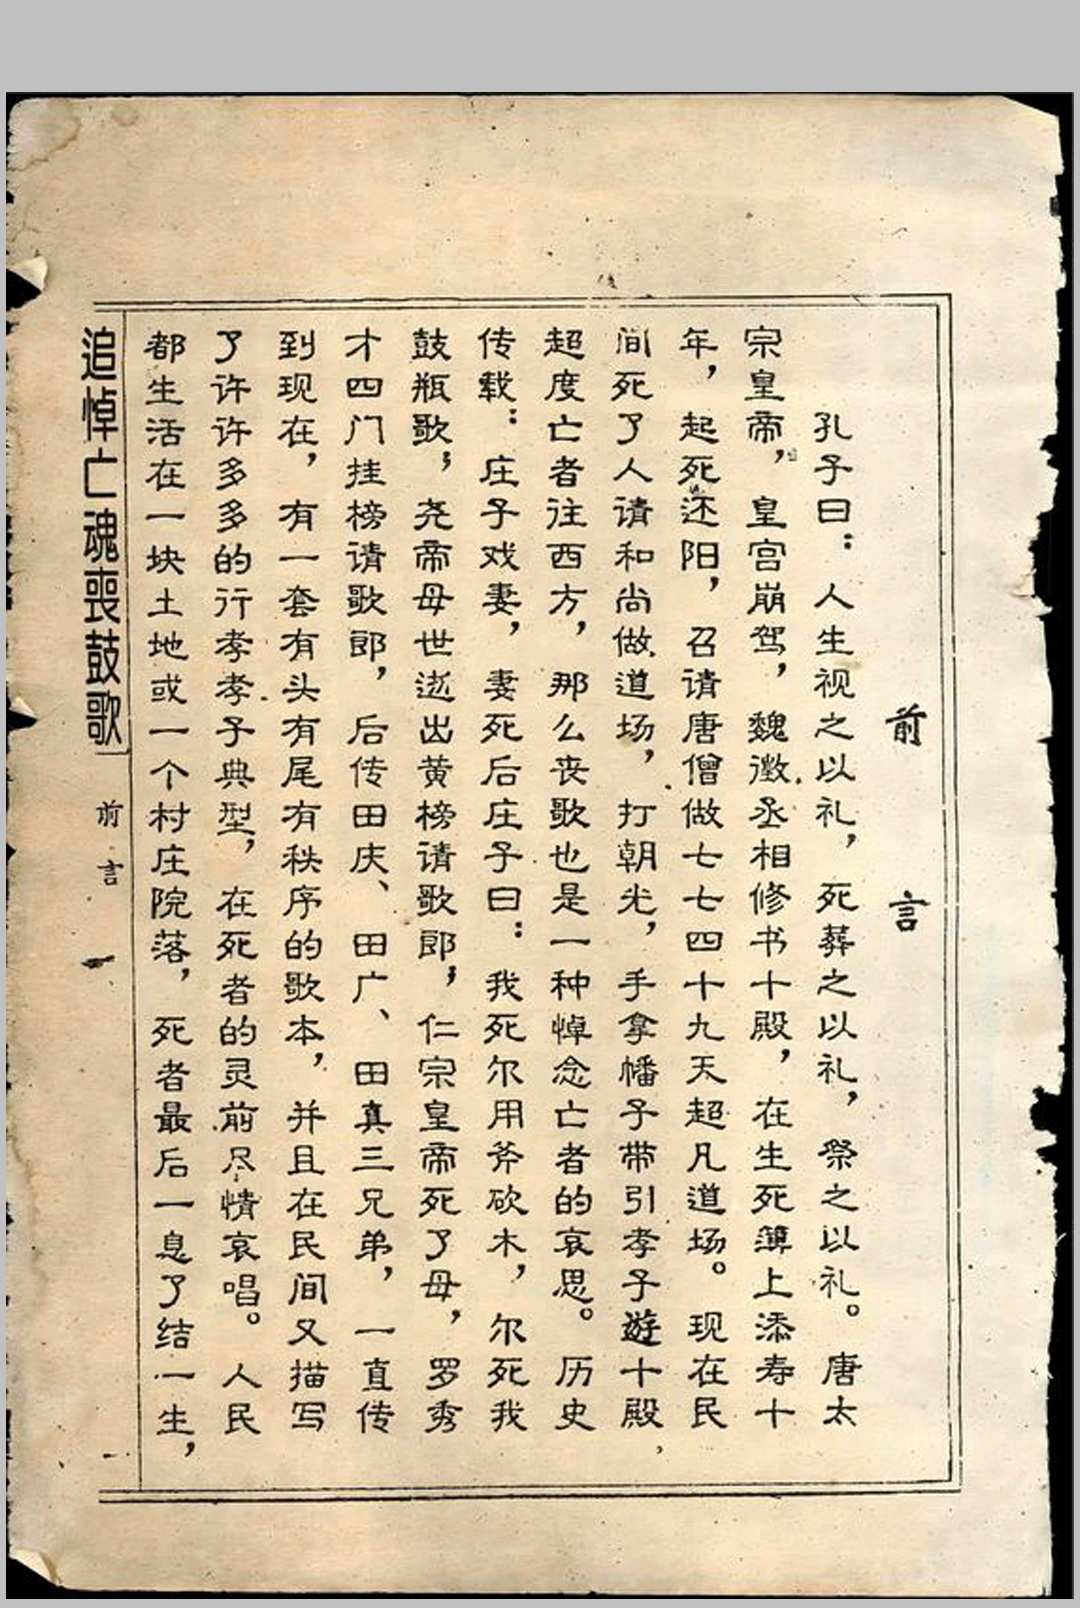 前言
孔子曰：人生视之以礼，死葬之以礼，祭之以礼。唐太
宗皇帝，皇宫崩驾，魏徵丞相修书十殿，在生死薄上添寿十
年，起死还阳，召请唐僧做七七四十九天超凡道场。现在民
间死了人请和尚做道场，打朝光，手拿幡子带引孝子遊十殿，
超度亡者往西方，那么丧歌也是一种悼念亡者的哀思。历史
传载：庄子戏妻，妻死后庄子曰：我死尔用斧砍木，尔死我
鼓瓶歌；尧帝母世逝出黄榜请歌郎；仁宗皇帝死了母，罗秀
才四门挂榜请歌郎，后传田庆、田广、田真三兄弟，一直传
到现在，有一套有头有尾有秩序的歌本，并且在民间又描写
了许许多多的行孝孝子典型，在死者的灵前尽情哀唱。人民
都生活在一块土地或一个村庄院落，死者最后一息了结一生，
追悼亡魂喪鼓歌 前言 一